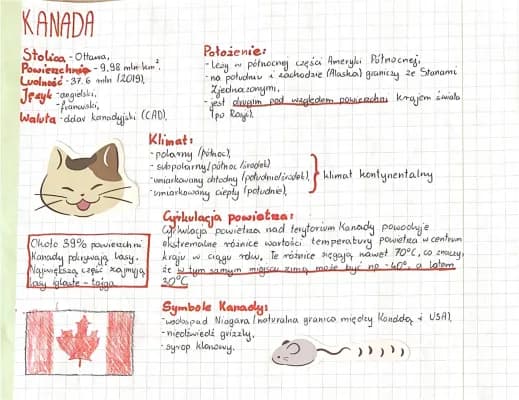 KANADA
Stolica - Ottawa,
Powierzchnia - 9,98 mln km²,
Ludność - 37,6 mln (2019),
Język - angielski,
- francuski,
Waluta - dolar kanadyjski (CAD).
Położenie:
- leży w północnej części Ameryki Północnej,
- na południu i zachodzie (Alaska) graniczy ze Stanami
Zjednoczonymi,
- jest drugim pod względem powierzchni krajem świata
(po Rosji).
Klimat:
- polarny (północ),
- subpolarny (północ/środek)
- umiarkowany chłodny (południe/środek),
- umiarkowany ciepły (południe),
klimat kontynentalny
Cyrkulacja powietrza:
Cyrkulacja powietrza nad terytorium Kanady powoduje
ekstremalne różnice wartości temperatury powietrza w centrum
kraju w ciągu roku. Te różnice sięgają nawet 70°C, co znaczy,
że w tym samym miejscu zimą może być np -40°, a latem
30°C
Około 39% powierzchni
Kanady pokrywają lasy.
Największą część zajmują
lasy iglaste - tajga
Symbole Kanady:
- wodospad Niagara (naturalna granica między Kanadą i USA),
- niedźwiedź grizzly,
- syrop klonowy.